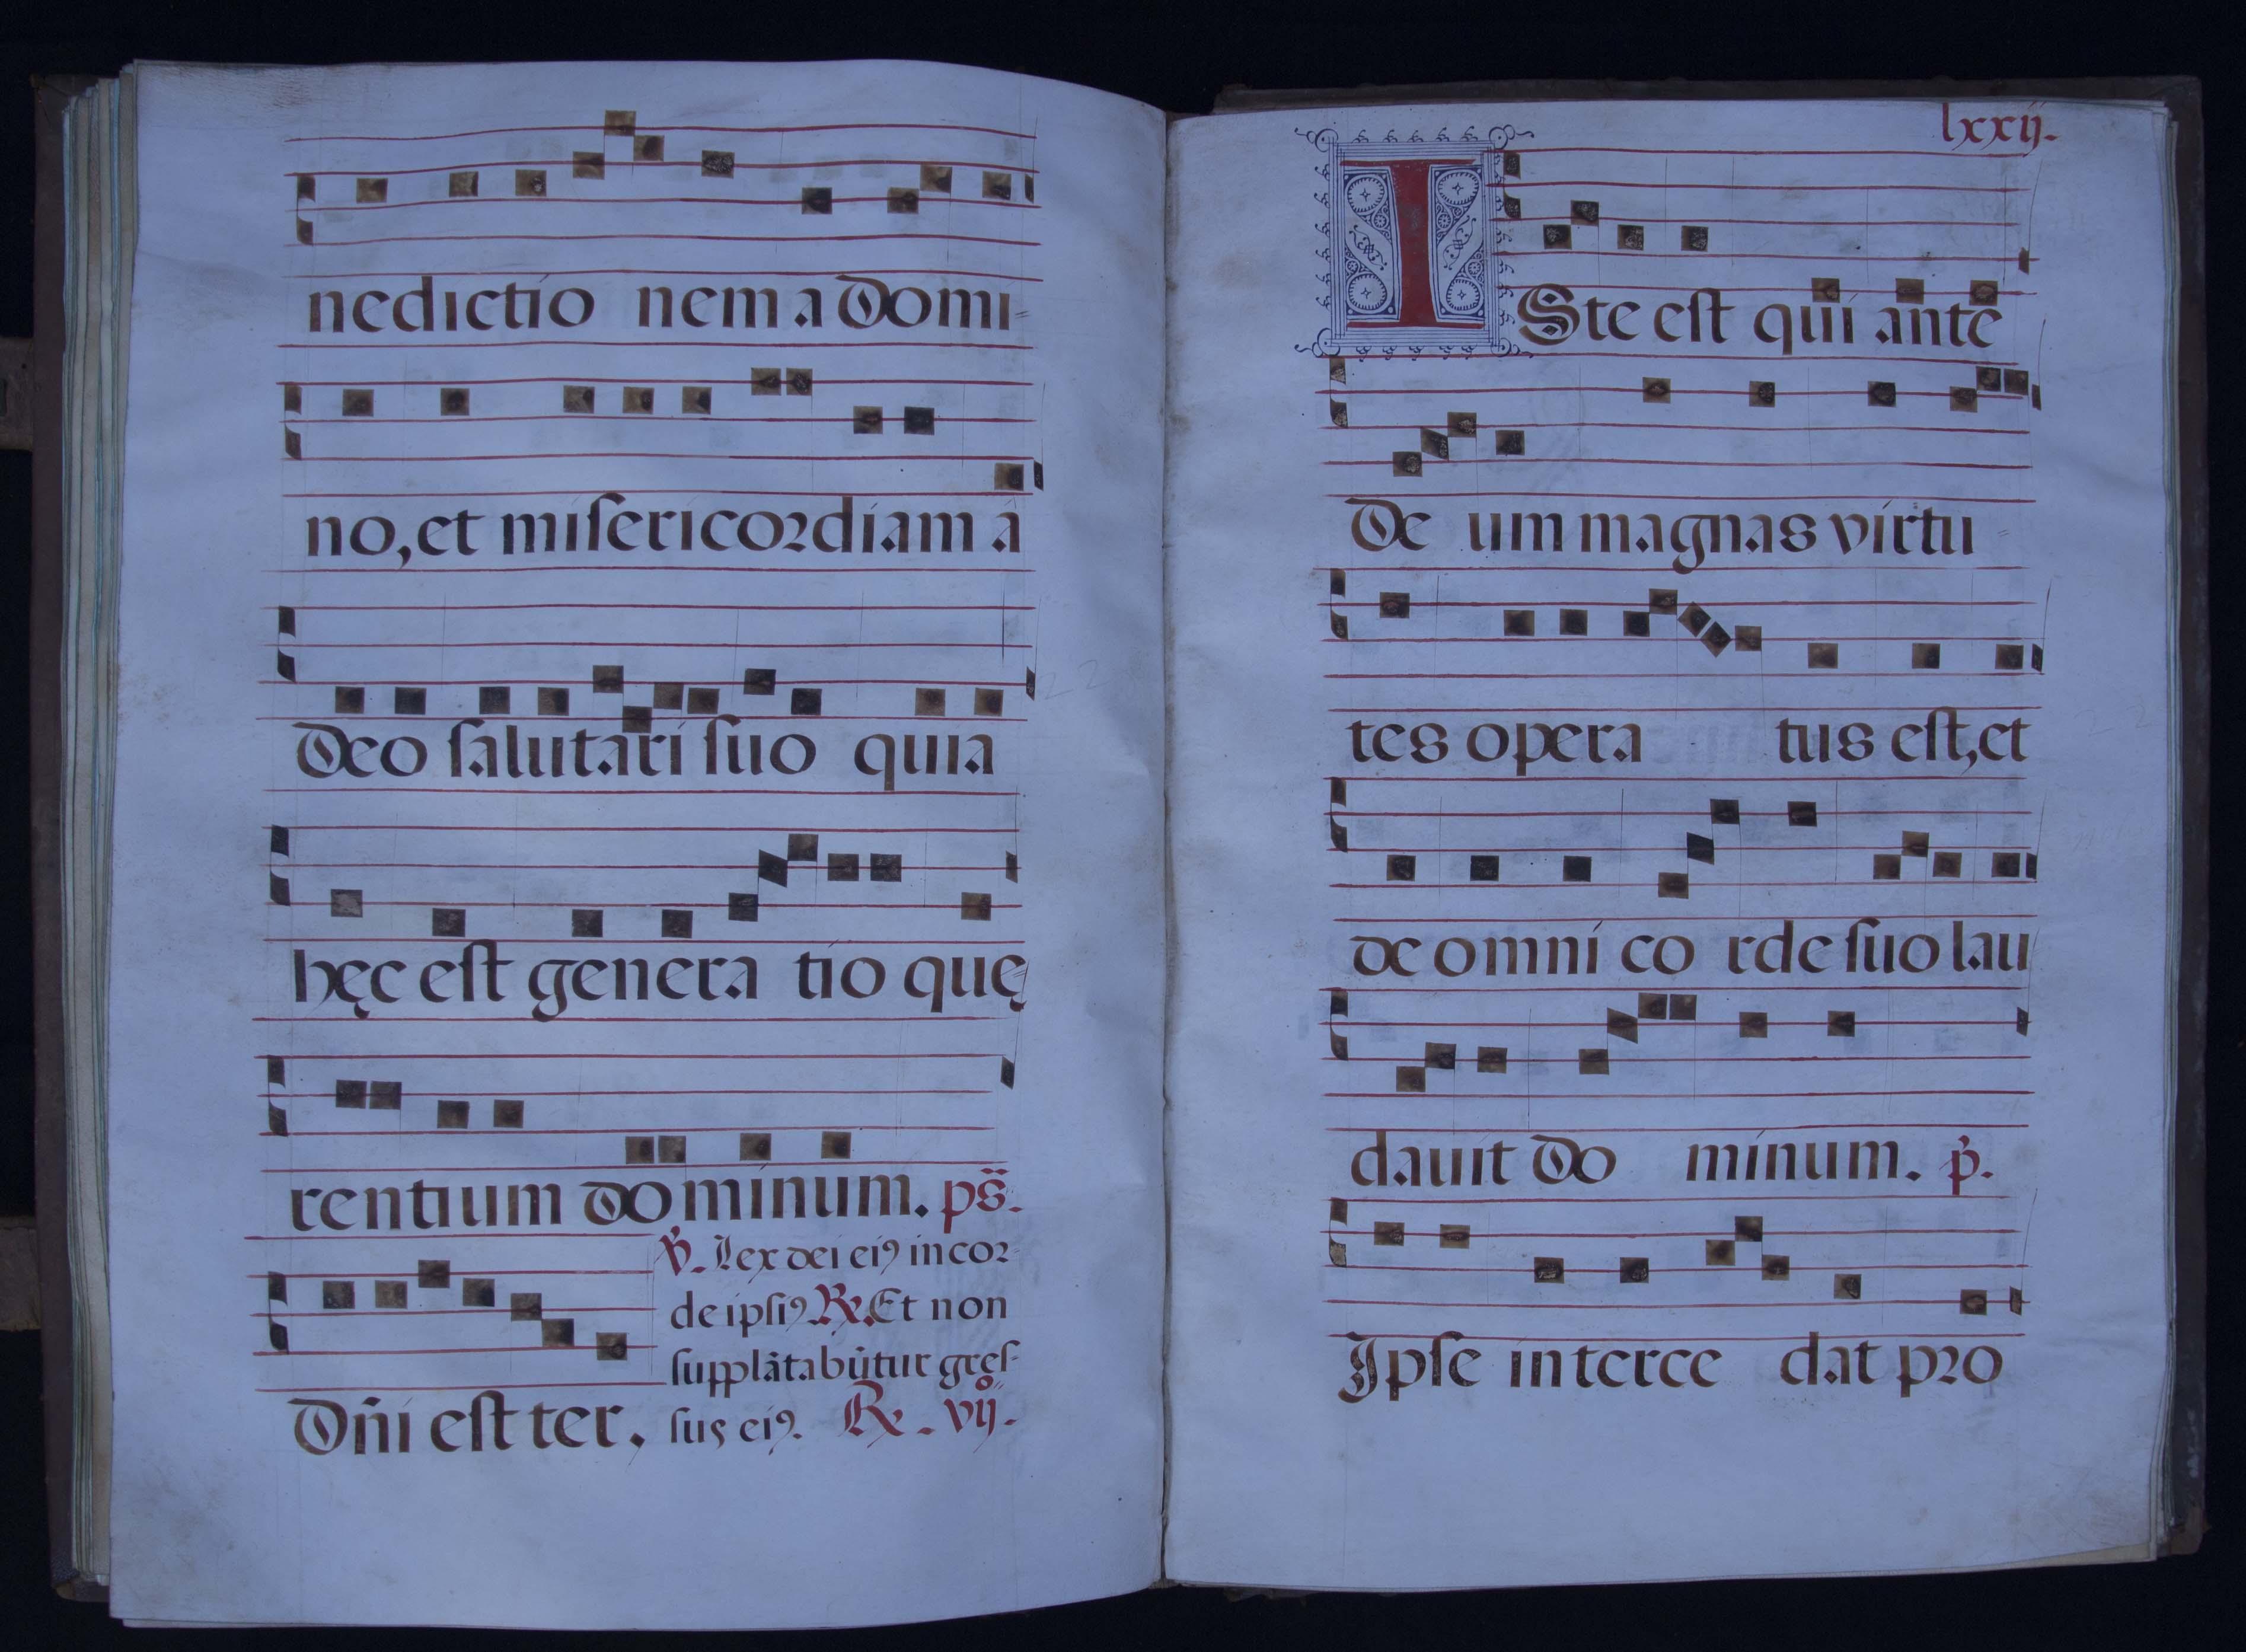 nedictio nem a Domi-
no, et miſericordiam â
Deo ſalutari ſuo quia
hęc eſt genera tio quę-
rentium dominum. ps̃.
℣. Lex dei ei⁹ in cor-
de ipſi⁹ ℟. Et non
ſupplãtabũtur greſ-
sus ei⁹. ℟. vijº.
Dñi eſt ter.
lxxij.
ISte eſt qui ante
De um magnas virtu-
tes opera tus eſt, et
de omni co rde ſuo lau
dauit Do minum. p̉.
Ipſe interce dat pro